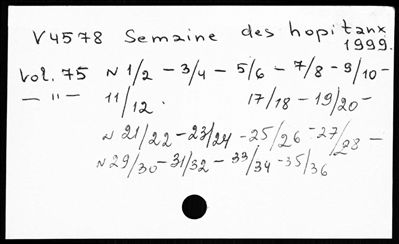 V4578 Semaine des hopitanx
1999.
Vol. 75 N 1/2 - 3/4 - 5/6 - 7/8 - 9/10 -
— " — 11/12. 17/18 - 19/20 -
N 21/22 - 23/24 - 25/26 - 27/28 -
N 29/30 - 31/32 - 33/34 - 35/36